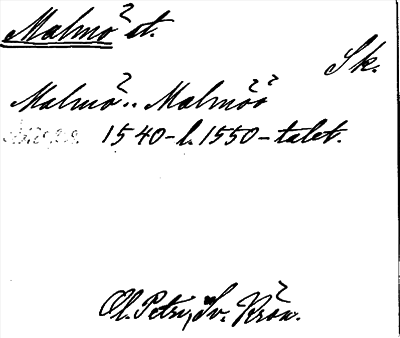 Malmö st.
Sk.
Malmö.. Malmöö
1540-l. 1550-talet.
Ol. Petri, Sv. Krön.